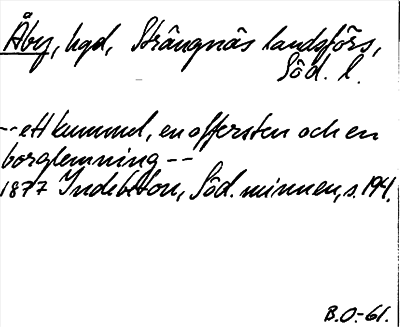 Åby, hgd, Strängnäs landsförs,
Söd. l.
-- ett kummel, en offersten och en
borglemning --
1877 Indebetou, Söd. minnen, s. 194.
B.O.-61.